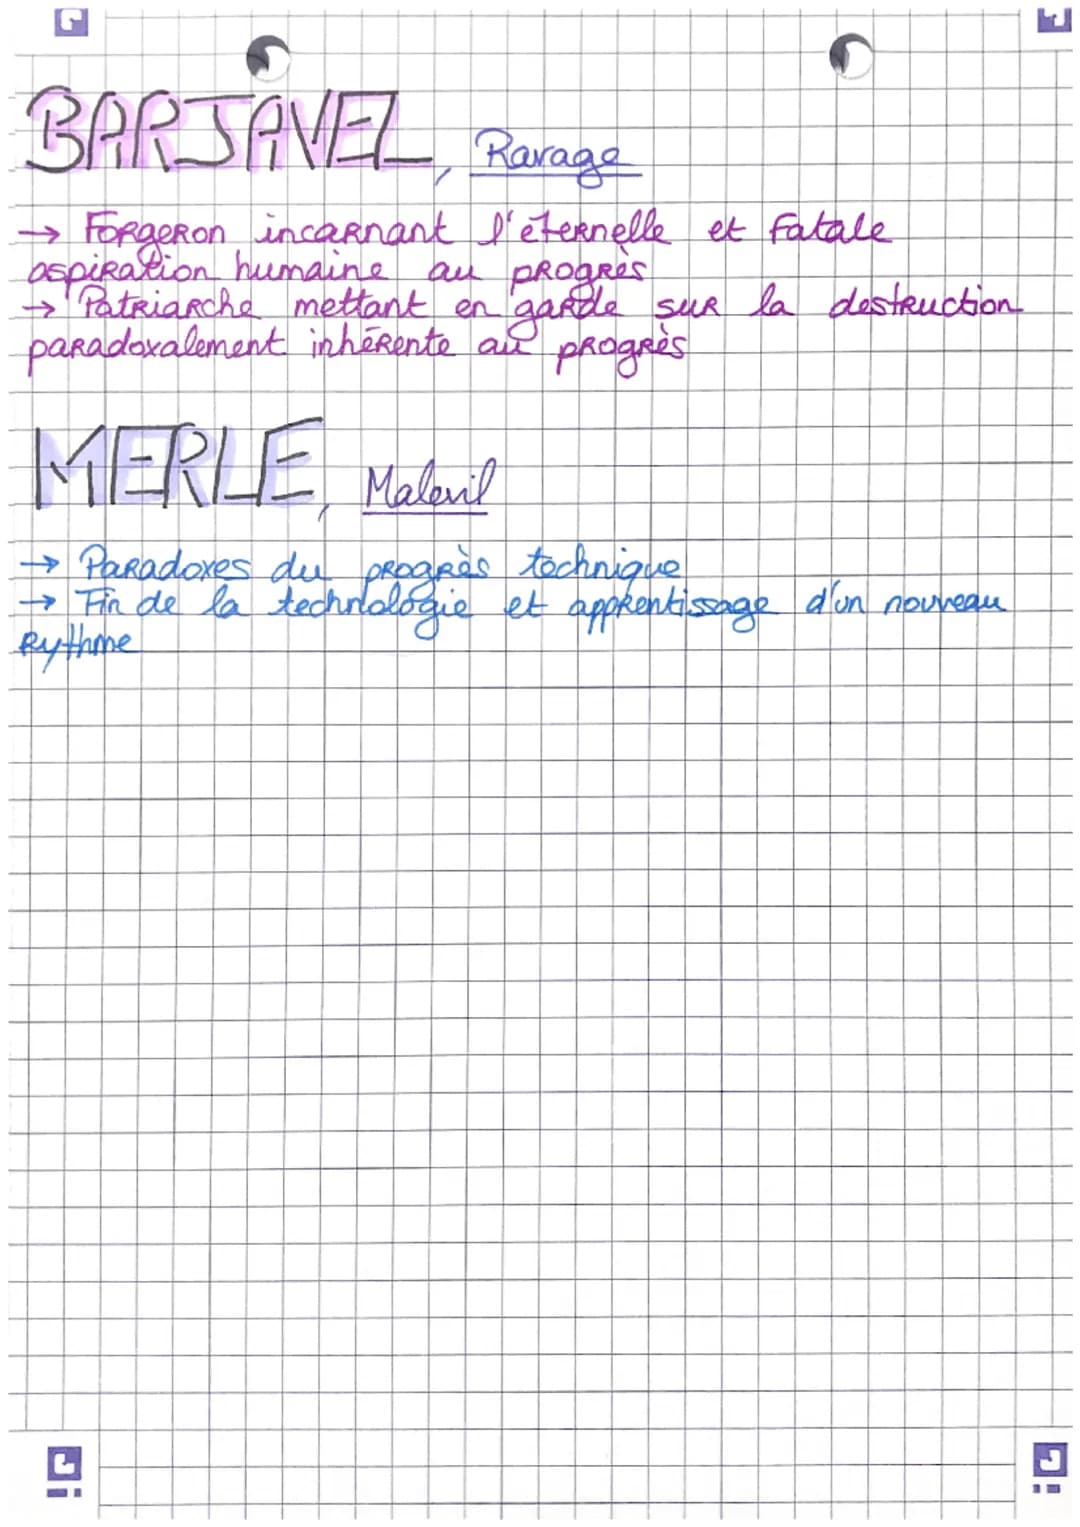 BARJAVEL, Ravage
→ Forgeron incarnant l'éternelle et fatale
aspiration humaine au progrès
→ Patriarche mettant en garde sur la destruction
paradoxalement inhérente au progrès
MERLE, Malevil
→ Paradoxes du progrès technique
→ Fin de la technologie et apprentissage d'un nouveau
rythme